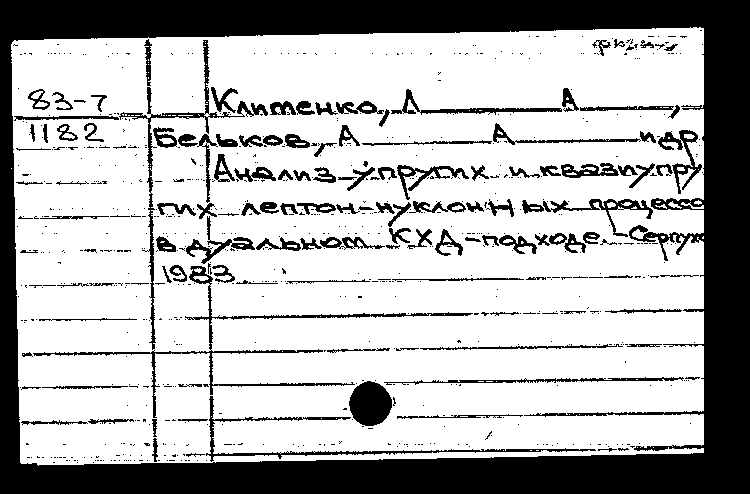 физика
83-7 Клименко, Л А ,
1182 Бельков, А А и др.
Анализ упругих и квазиупру
гих лептон-нуклонных процессо
в дуальном КХД-подходе.-Серпухо
1983.